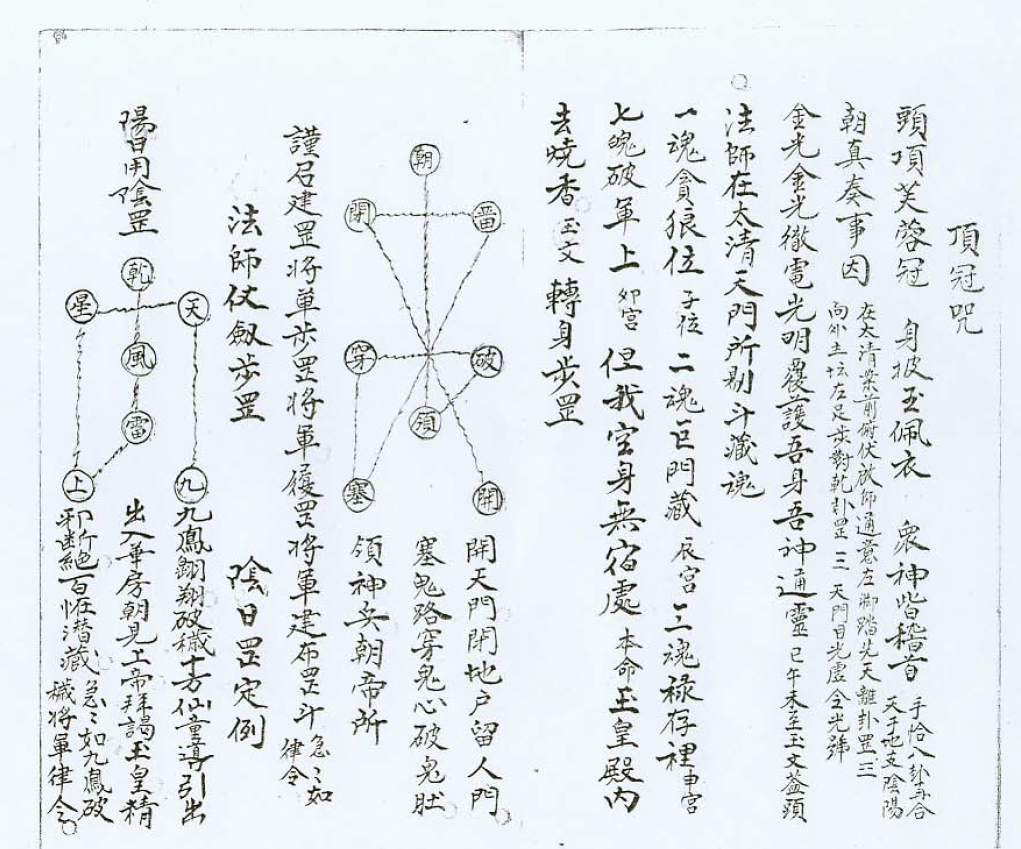 頂冠咒
頭頂芙蓉冠 身披玉佩衣 眾神皆稽首 手恰八卦再合天子地支陰陽
朝真奏事因 在太清案前俯伏啟師通意左脚踏先天離卦罡三向外土坛左足步對乾卦罡三 天門日光虛
金光金光徹電光明覆護吾身吾神通靈 巳午未至玉文蓋頭
法師在太清天門所剔斗藏魂
一魂貪狼位 子位 二魂巨門藏 辰宮 三魂祿存裡 申宮
七魄破軍上 卯宮 但我空身無宿處 本命玉皇殿內
去燒香 玉文 轉身步罡
朝
閉 留
穿 破
領
塞 開
開天門閉地戶留人門
塞鬼路穿鬼心破鬼肚
領神兵朝帝所
謹召建罡將軍步罡將軍履罡將軍建布罡斗 急々如律令
法師仗劔步罡 陰日罡定例
陽日用陰罡
乾
星 天
風
雷
上 九
九鳳翱翔破穢十方仙童導引出
出入華房朝見上帝拜謁玉皇精
邪斷絕百怪潛藏 急々如九鳳破穢將軍律令